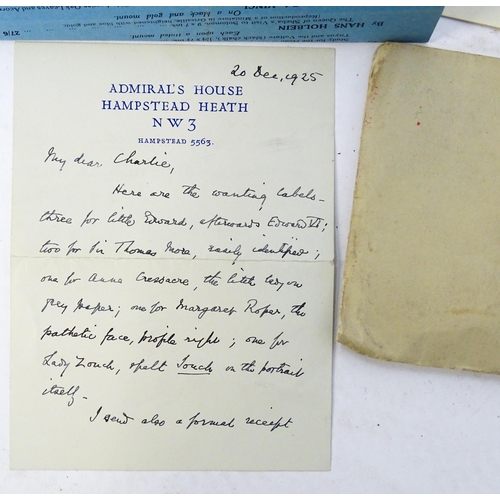 By HANS HOLBEIN
On a black and gold mount.
Each upon a tinted mount.
27/6
20 Dec, 1925
ADMIRAL'S HOUSE
HAMPSTEAD HEATH
NW3
HAMPSTEAD 5563.
My dear Charlie,
Here are the wanting labels-
three for little Edwards, afterwards Edward VI;
two for Sir Thomas More, easily identified;
one for Anna Cressacre, the little lady on
grey paper; one for Margaret Roper, the
pathetic face, profile right; one for
Lady Zouch, spelt Souch on the portrait
itself-
I send also a formal receipt